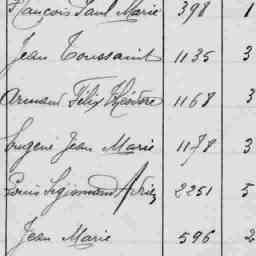 François Paul Marie 398 1
Jean Toussaint 1135 3
Armand Félix Théodore 1168 3
Eugène Jean Marie 1178 3
Louis Sigismond 2251 5
Jean Marie 596 2